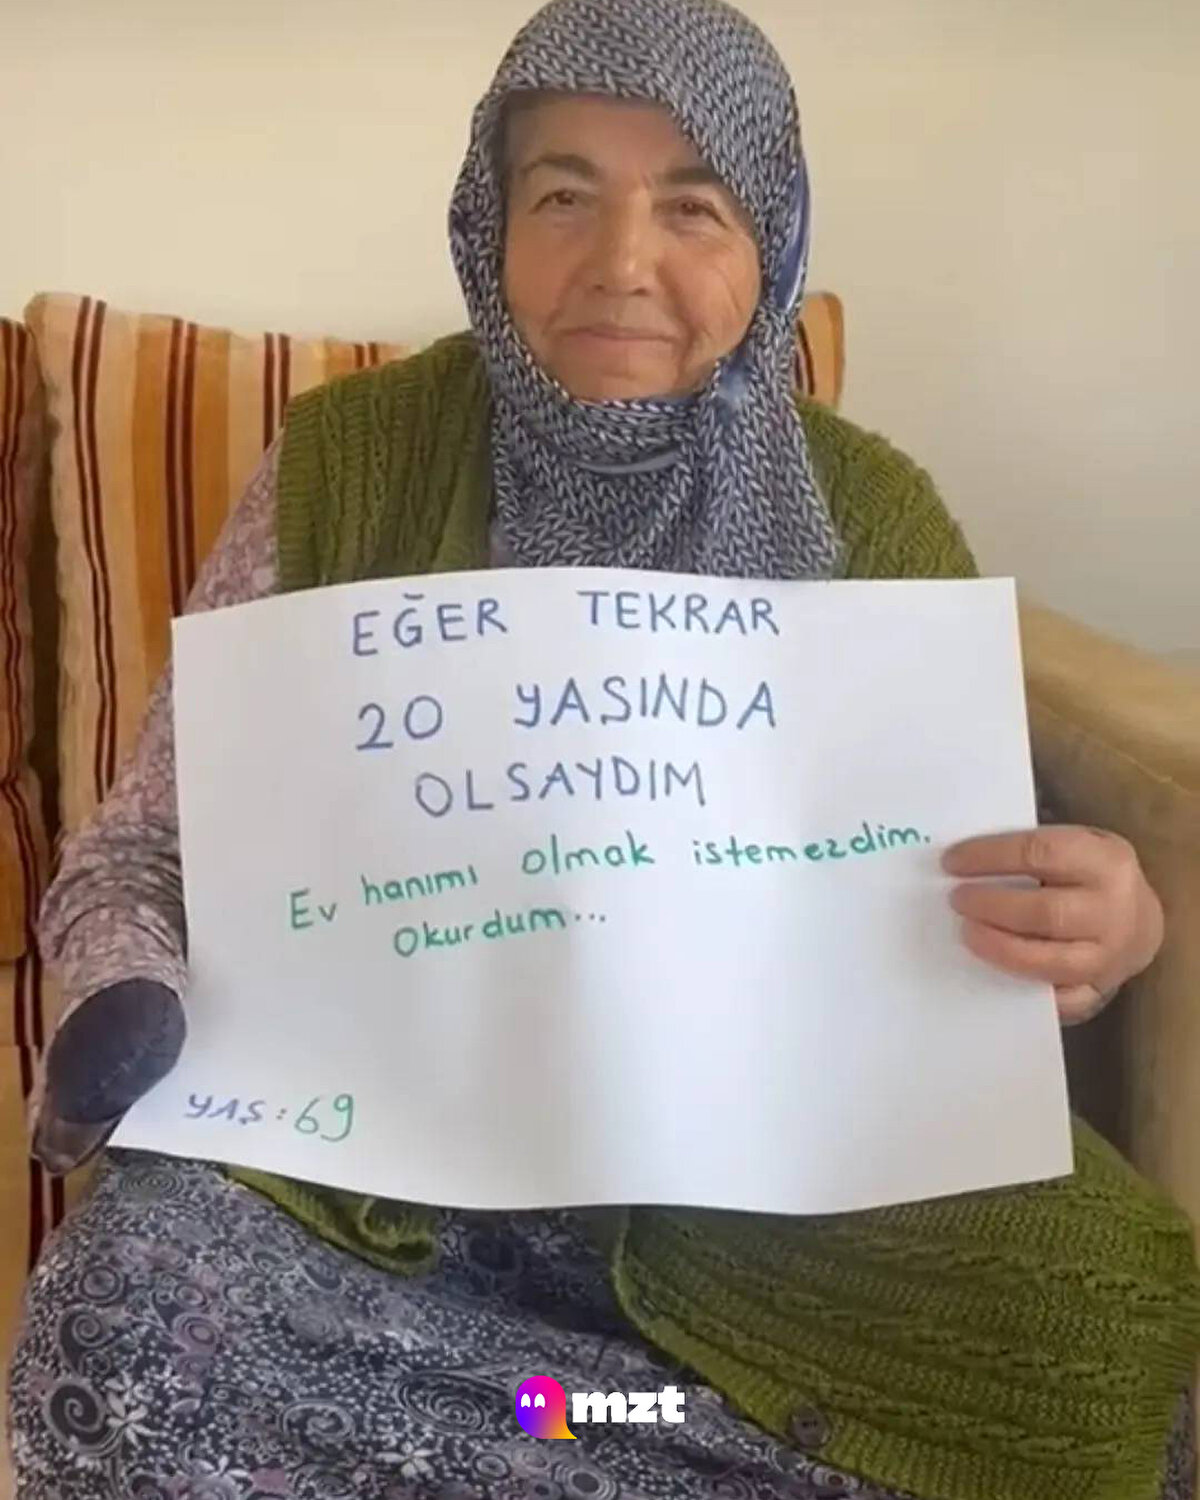 EĞER TEKRAR
20 YASINDA
OLSAYDIM
Ev hanımı olmak istemezdim.
Okurdum...
YAŞ: 69
mzt